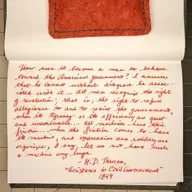 How does it become a man to behave
toward the American government? I answer
that he cannot without disgrace be asso-
ciated with it... all men recognize the right
of revolution; that is, the right to refuse
allegiance to and to resist the government,
when its tyranny or its inefficiency are great
and unendurable... all machines have their
friction... when the friction comes to have
its machine, and oppression and robbery are
organized, I say, let us not have such
a machine any longer.
- H.D. Thoreau,
"Resistance to Civil Government"
1849